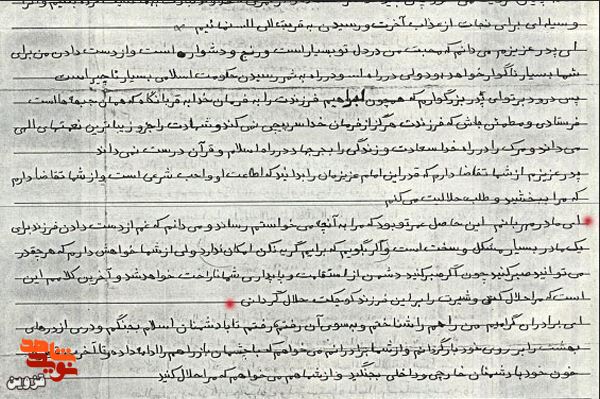 وسیله ای برای نجات از عذاب آخرت و رسیدن به قرب تعالی الله نمائیم
ای پدر عزیزم می دانم که محبت من در دل تو بسیار است و رنج و دشوار است و از دست دادن من برای
شما بسیار ناگوار خواهد بود ولی در راه اسلام و در راه به ثمر رسیدن حکومت اسلامی بسیار ناچیز است
پس درود بر تو ای پدر بزرگوارم که همچون ابراهیم فرزندت را به فرمان خدا به قربانگاه که همان جبهه ها است
فرستادی و مطمئن باش که فرزندت هرگز از فرمان خدا سرپیچی نمی کند و شهادت را جزو زیباترین نعمتهای الهی
می داند و مرگ را در راه خدا سعادت و زندگی را بجز جهاد در راه اسلام و قرآن درست نمی داند
پدر عزیزم از شما تقاضا دارم که قدر این امام عزیزمان را بدانید که اطاعت او واجب شرعی است و از شما تقاضا دارم
که مرا ببخشید و طلب حلالیت می کنم
ای مادر مهربانم این حاصل عمر تو بود که مرا به آنچه می خواستم رساند و می دانم که غم از دست دادن فرزند برای
یک مادر بسیار مشکل و سخت است و اگر بگویم که برایم گریه نکن امکان ندارد ولی از شما خواهش دارم که هر چقدر
می توانید صبر کنید چون اگر صبر کنید دشمن از استقامت و پایداری شما ناراحت خواهد شد و آخرین کلامم این
است که مرا حلال کنی و شیرت را بر این فرزند کوچکت حلال گردانی
ای برادران گرامیم من راهم را شناختم و به سوی آن رفتم رفتم تا با دشمنان اسلام بجنگم و دری از درهای
بهشت را بر روی خود بازگردانم و از شما برادرانم می خواهم که با چشمان باز راهم را ادامه داده و تا آخرین
خون خود با دشمنان خارجی و داخلی بجنگید و از شما هم می خواهم که مرا حلال کنید
نوید شاهد
قزوین